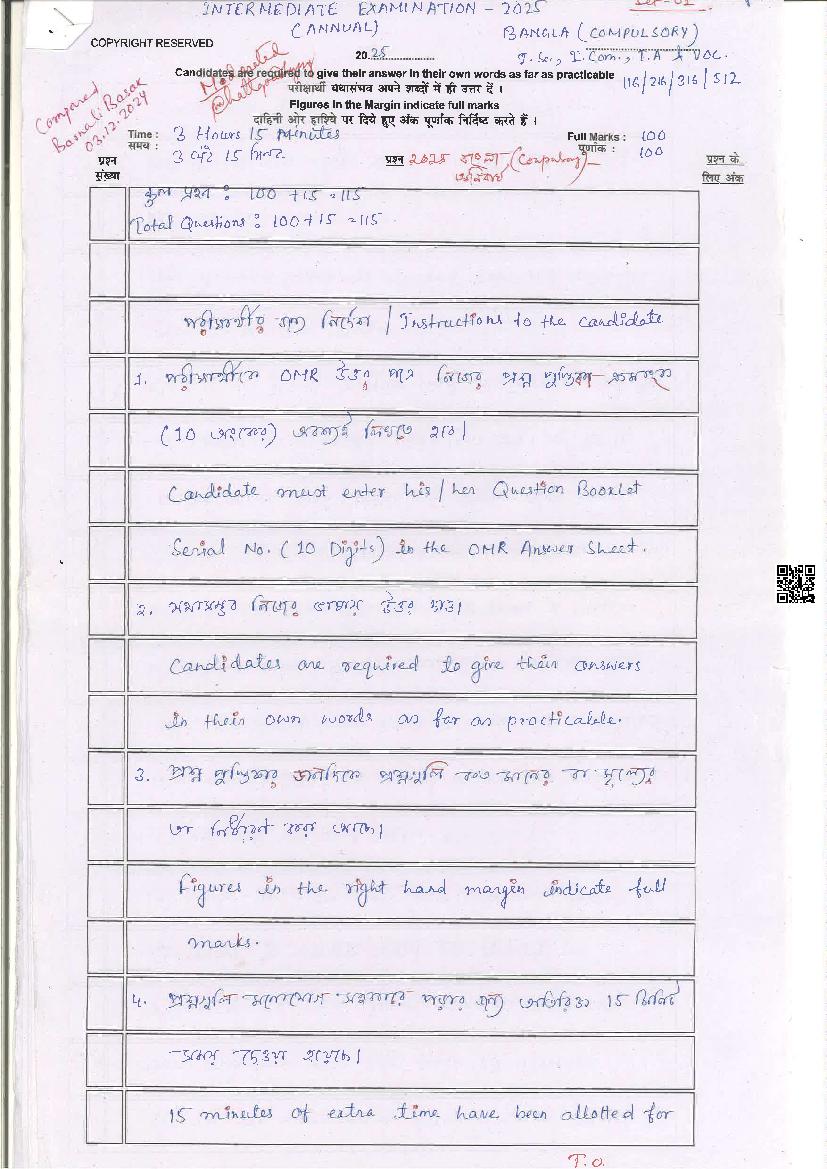 INTERMEDIATE EXAMINATION - 2025 Set-01
(ANNUAL) BANGLA (COMPULSORY)
COPYRIGHT RESERVED
2025 I.Sc., I.Com., I.A & VOC.
Candidates are required to give their answer in their own words as far as practicable 116/216/316/512
Moderated
परीक्षार्थी यथासंभव अपने शब्दों में ही उत्तर दें ।
Figures in the Margin indicate full marks
दाहिनी ओर हाशिये पर दिये हुए अंक पूर्णांक निर्दिष्ट करते हैं ।
Compared
Basnali Basak
03.12.2024
Time : 3 Hours 15 minutes Full Marks : 100
समय : 3 घंटे 15 मिनट पूर्णांक : 100
प्रश्न संख्या प्रश्न 2025 বাংলা (Compulsory) प्रश्न के लिए अंक
অনিবার্য
कुल प्रश्न : 100 + 15 = 115
Total Questions : 100 + 15 = 115
পরীক্ষার্থীর জন্য নির্দেশ / Instructions to the candidate
1. পরীক্ষার্থীকে OMR উত্তর পত্রে নিজের প্রশ্ন পুস্তিকা ক্রমসংখ্যা
(10 অংকের) অবশ্যই লিখতে হবে।
Candidate must enter his / her Question Booklet
Serial No. (10 Digits) in the OMR Answer Sheet.
২. যথাসম্ভব নিজের ভাষায় উত্তর দাও।
Candidates are required to give their answers
in their own words as far as practicable.
3. প্রশ্ন পুস্তিকার ডানদিকে প্রশ্নগুলি কত মানের বা মূল্যের
তা নির্ধারণ করা আছে।
Figures in the right hand margin indicate full
marks.
৪. প্রশ্নগুলি মনোযোগ সহকারে পড়ার জন্য অতিরিক্ত 15 মিনিট
সময় দেওয়া হয়েছে।
15 minutes of extra time have been allotted for
T.O.